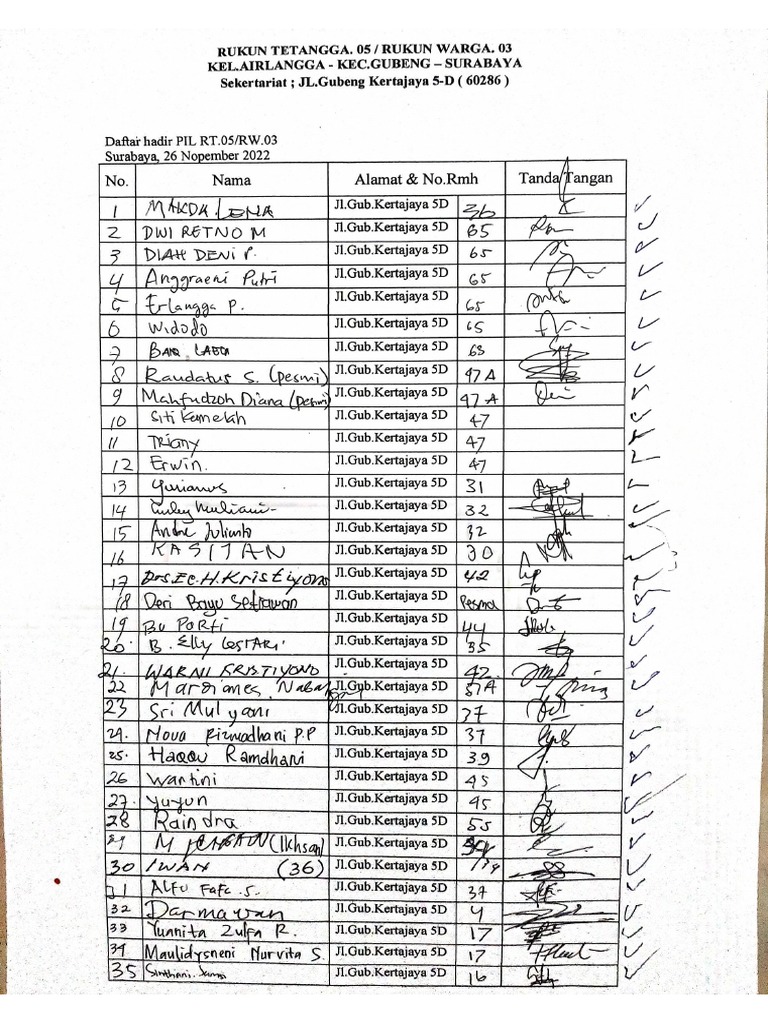 RUKUN TETANGGA. 05 / RUKUN WARGA. 03
KEL.AIRLANGGA - KEC.GUBENG – SURABAYA
Sekertariat ; JL.Gubeng Kertajaya 5-D ( 60286 )
Daftar hadir PIL RT.05/RW.03
Surabaya, 26 Nopember 2022
No. Nama Alamat & No.Rmh Tanda Tangan
1 MAKDALENA Jl.Gub.Kertajaya 5D 36
2 DWI RETNO M Jl.Gub.Kertajaya 5D 65
3 DIAH DENI P. Jl.Gub.Kertajaya 5D 65
4 Anggraeni Putri Jl.Gub.Kertajaya 5D 65
5 Erlangga P. Jl.Gub.Kertajaya 5D 65
6 Widodo Jl.Gub.Kertajaya 5D 65
7 Jl.Gub.Kertajaya 5D 63
8 Raudatus S. (pesmi) Jl.Gub.Kertajaya 5D 47 A
9 Mahfudzoh Diana (pesmi) Jl.Gub.Kertajaya 5D 47 A
10 Siti Kemelah Jl.Gub.Kertajaya 5D 47
11 TRIANY Jl.Gub.Kertajaya 5D 47
12 Erwin. Jl.Gub.Kertajaya 5D 47
13 Yurianus Jl.Gub.Kertajaya 5D 31
14 Muliani Jl.Gub.Kertajaya 5D 32
15 Andre Julianto Jl.Gub.Kertajaya 5D 32
16 KASIJAN Jl.Gub.Kertajaya 5D 30
17 Drs.Ec.H.Kristiyono Jl.Gub.Kertajaya 5D 42
18 Deri Bayu Setiawan Jl.Gub.Kertajaya 5D Pesma
19 BU PORTI Jl.Gub.Kertajaya 5D 44
20. B. Elly LESTARI Jl.Gub.Kertajaya 5D 35
21. WARNI KRISTIYONO Jl.Gub.Kertajaya 5D 42
22 Marsianes Jl.Gub.Kertajaya 5D 51A
23 Sri Mulyani Jl.Gub.Kertajaya 5D 37
24. Nova Rizmadhani P.P Jl.Gub.Kertajaya 5D 37
25. Haqqu Ramdhani Jl.Gub.Kertajaya 5D 39
26 Wartini Jl.Gub.Kertajaya 5D 45
27. Yuyun Jl.Gub.Kertajaya 5D 45
28 Raindra Jl.Gub.Kertajaya 5D 55
29 M (Ikhsan) Jl.Gub.Kertajaya 5D
30 IWAN (36) Jl.Gub.Kertajaya 5D
31 ALFU FAFA .S. Jl.Gub.Kertajaya 5D 37
32 Darmawan Jl.Gub.Kertajaya 5D 4
33 Yunnita Zulfa R. Jl.Gub.Kertajaya 5D 17
34 Maulidysneni Nurvita S. Jl.Gub.Kertajaya 5D 17
35 Jl.Gub.Kertajaya 5D 16